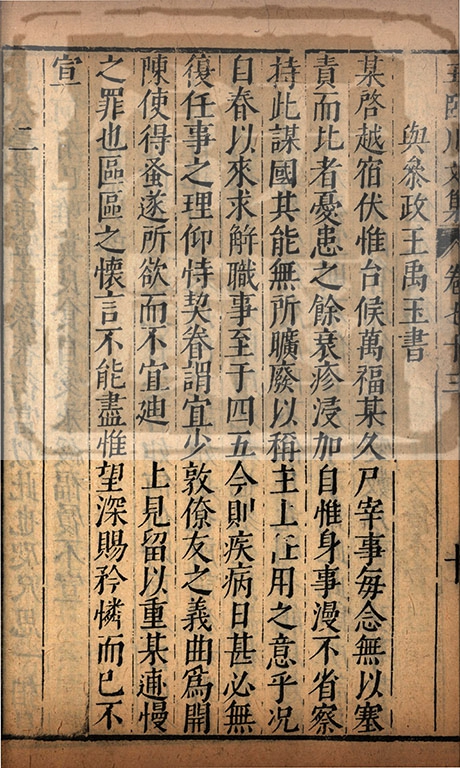 王臨川文集 卷七十三 十
與叅政王禹玉書
某啓越宿伏惟台候萬福某久尸宰事毎念無以塞
責而比者憂患之餘衰疹浸加自惟身事漫不省察
持此謀國其能無所曠廢以稱主上任用之意乎况
自春以來求解職事至于四五今則疾病日甚必無
復任事之理仰恃契眷謂宜少敦僚友之義曲爲開
陳使得蚤遂所欲而不宜廸 上見留以重某逋慢
之罪也區區之懷言不能盡惟望深賜矜憐而已不
宣
二